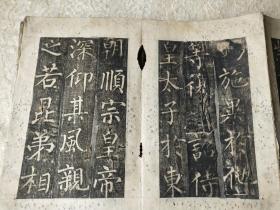 施異於他
等復詔侍
皇太子於東
朝順宗皇帝
深仰其風親
之若昆弟相